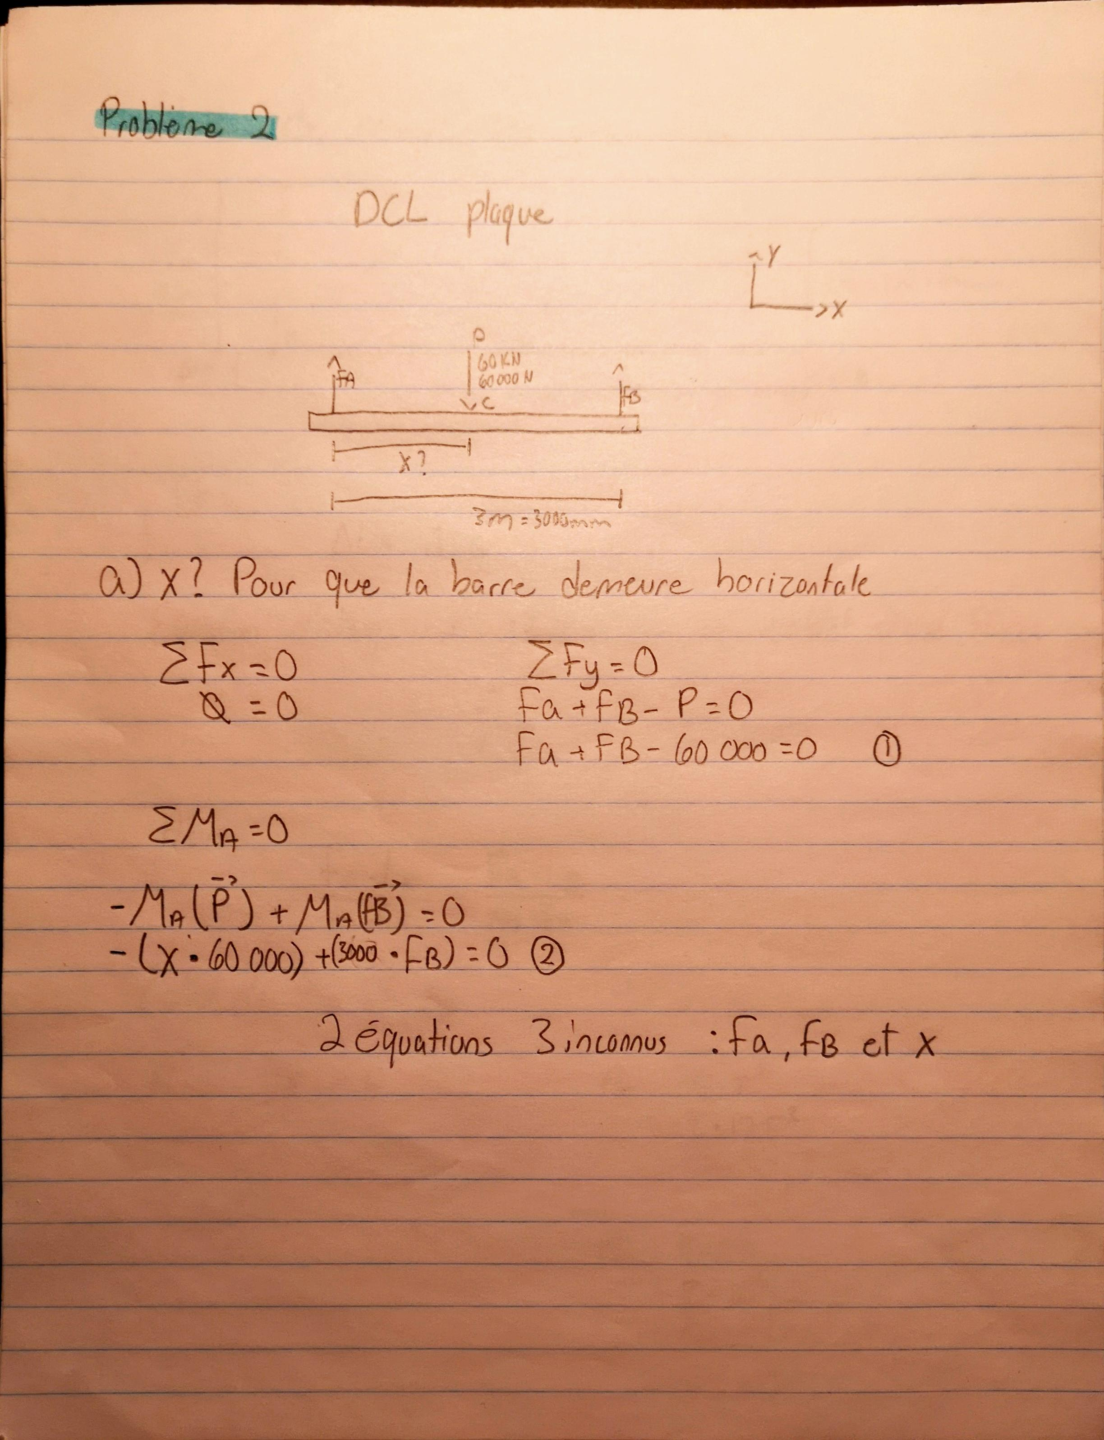 Problème 2
DCL plaque
Y
X
60 KN
FA
60 000 N
FB
C
X?
3m = 3000mm
a) X? Pour que la barre demeure horizontale
ΣFx = 0
ΣFy = 0
= 0
Fa + FB - P = 0
Fa + FB - 60 000 = 0 ①
ΣMA = 0
- MA(P⃗) + MA(FB⃗) = 0
- (X • 60 000) + (3000 • FB) = 0 ②
2 équations 3 inconnus : Fa, FB et X